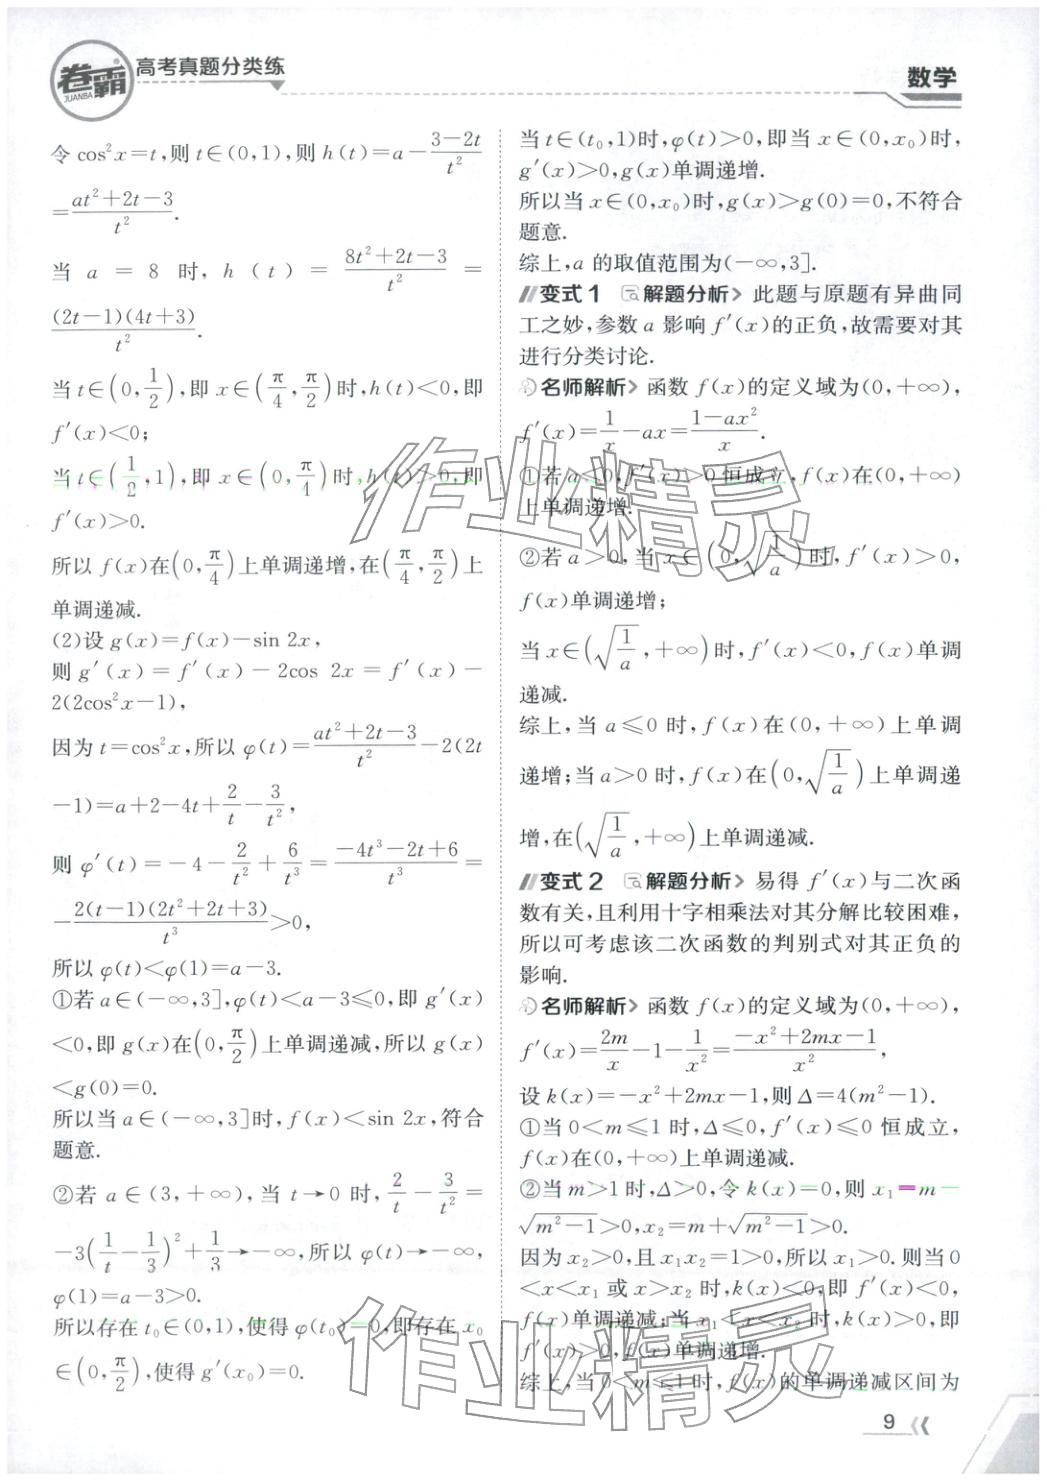 卷霸
JUANBA
高考真题分类练
数学
令 cos²x=t,则 t∈(0,1),则 h(t)=a-(3-2t)/t²
=(at²+2t-3)/t².
当 a = 8 时, h(t) = (8t²+2t-3)/t² =
(2t-1)(4t+3)/t².
当 t∈(0,1/2),即 x∈(π/4,π/2)时,h(t)<0,即
f′(x)<0;
当 t∈(1/2,1),即 x∈(0,π/4)时,h(t)>0,即
f′(x)>0.
所以 f(x)在(0,π/4)上单调递增,在(π/4,π/2)上
单调递减.
(2)设 g(x)=f(x)-sin 2x,
则 g′(x) = f′(x) - 2cos 2x = f′(x) -
2(2cos²x-1),
因为 t=cos²x,所以 φ(t)=(at²+2t-3)/t²-2(2t
-1)=a+2-4t+2/t-3/t²,
则 φ′(t)=-4-2/t²+6/t³=(-4t³-2t+6)/t³=
-2(t-1)(2t²+2t+3)/t³>0,
所以 φ(t)<φ(1)=a-3.
①若 a∈(-∞,3],φ(t)<a-3≤0,即 g′(x)
<0,即 g(x)在(0,π/2)上单调递减,所以 g(x)
<g(0)=0.
所以当 a∈(-∞,3]时,f(x)<sin 2x,符合
题意.
②若 a∈(3,+∞),当 t→0 时,2/t-3/t²=
-3(1/t-1/3)²+1/3→-∞,所以 φ(t)→-∞,
φ(1)=a-3>0.
所以存在 t₀∈(0,1),使得 φ(t₀)=0,即存在 x₀
∈(0,π/2),使得 g′(x₀)=0.
当 t∈(t₀,1)时,φ(t)>0,即当 x∈(0,x₀)时,
g′(x)>0,g(x)单调递增.
所以当 x∈(0,x₀)时,g(x)>g(0)=0,不符合
题意.
综上,a 的取值范围为(-∞,3].
变式1 解题分析> 此题与原题有异曲同
工之妙,参数 a 影响 f′(x)的正负,故需要对其
进行分类讨论.
名师解析> 函数 f(x)的定义域为(0,+∞),
f′(x)=1/x-ax=(1-ax²)/x.
①若 a≤0,f′(x)>0 恒成立,f(x)在(0,+∞)
上单调递增.
②若 a>0,当 x∈(0,√(1/a))时,f′(x)>0,
f(x)单调递增;
当 x∈(√(1/a),+∞)时,f′(x)<0,f(x)单调
递减.
综上,当 a≤0 时,f(x)在(0,+∞)上单调
递增;当 a>0 时,f(x)在(0,√(1/a))上单调递
增,在(√(1/a),+∞)上单调递减.
变式2 解题分析> 易得 f′(x)与二次函
数有关,且利用十字相乘法对其分解比较困难,
所以可考虑该二次函数的判别式对其正负的
影响.
名师解析> 函数 f(x)的定义域为(0,+∞),
f′(x)=2m/x-1-1/x²=(-x²+2mx-1)/x²,
设 k(x)=-x²+2mx-1,则 Δ=4(m²-1).
①当 0<m≤1 时,Δ≤0,f′(x)≤0 恒成立,
f(x)在(0,+∞)上单调递减.
②当 m>1 时,Δ>0,令 k(x)=0,则 x₁=m-
√(m²-1)>0,x₂=m+√(m²-1)>0.
因为 x₂>0,且 x₁x₂=1>0,所以 x₁>0.则当 0
<x<x₁ 或 x>x₂ 时,k(x)<0,即 f′(x)<0,
f(x)单调递减;当 x₁<x<x₂ 时,k(x)>0,即
f′(x)>0,f(x)单调递增.
综上,当 0<m≤1 时,f(x)的单调递减区间为
9
作业精灵
作业精灵